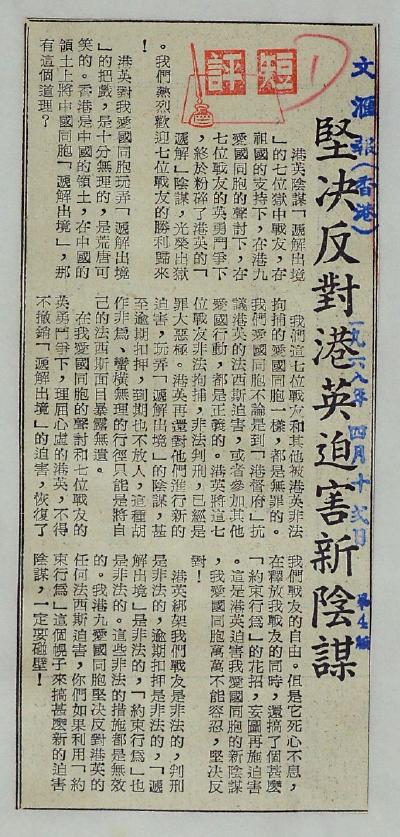 文滙報(香港)
一九六八年四月十弍日
第4版
堅决反對港英迫害新陰謀
①
短評
港英陰謀「遞解出境
」的七位獄中戰友,在
祖國的支持下,在港九
愛國同胞的聲討下,在
七位戰友的英勇鬥爭下
,終於粉碎了港英的「
遞解」陰謀,光榮出獄
。我們熱烈歡迎七位戰友的勝利歸來
!
港英對我愛國同胞玩弄「遞解出境
」的把戲,是十分無理的,是荒唐可
笑的。香港是中國的領土,在中國的
領土上將中國同胞「遞解出境」,那
有這個道理?
我們這七位戰友和其他被港英非法
拘捕的愛國同胞一樣,都是無罪的。
我們愛國同胞不論是到「港督府」抗
議港英的法西斯迫害,或者參加其他
愛國行動,都是正義的。港英將這七
位戰友非法拘捕,非法判刑,已經是
罪大惡極。港英再還對他們進行新的
迫害,玩弄「遞解出境」的陰謀,甚
至逾期扣押,到期也不放人,這種胡
作非爲、蠻橫無理的行徑只能是將自
己的法西斯面目暴露無遺。
在我愛國同胞的聲討和七位戰友的
英勇鬥爭下,理屈心虛的港英,不得
不撤銷「遞解出境」的迫害,恢復了
我們戰友的自由。但是它死心不息,
在釋放我戰友的同時,還搞了個甚麼
「約束行爲」的花招,妄圖再施迫害
。這是港英迫害我愛國同胞的新陰謀
,我愛國同胞萬萬不能容忍,堅决反
對!
港英綁架我們戰友是非法的,判刑
是非法的,逾期扣押是非法的,「遞
解出境」是非法的,「約束行爲」也
是非法的。這些非法的措施都是無效
的。我港九愛國同胞堅决反對港英的
任何法西斯迫害,你們如果利用「約
束行爲」這個幌子來搞甚麼新的迫害
陰謀,一定要碰壁!